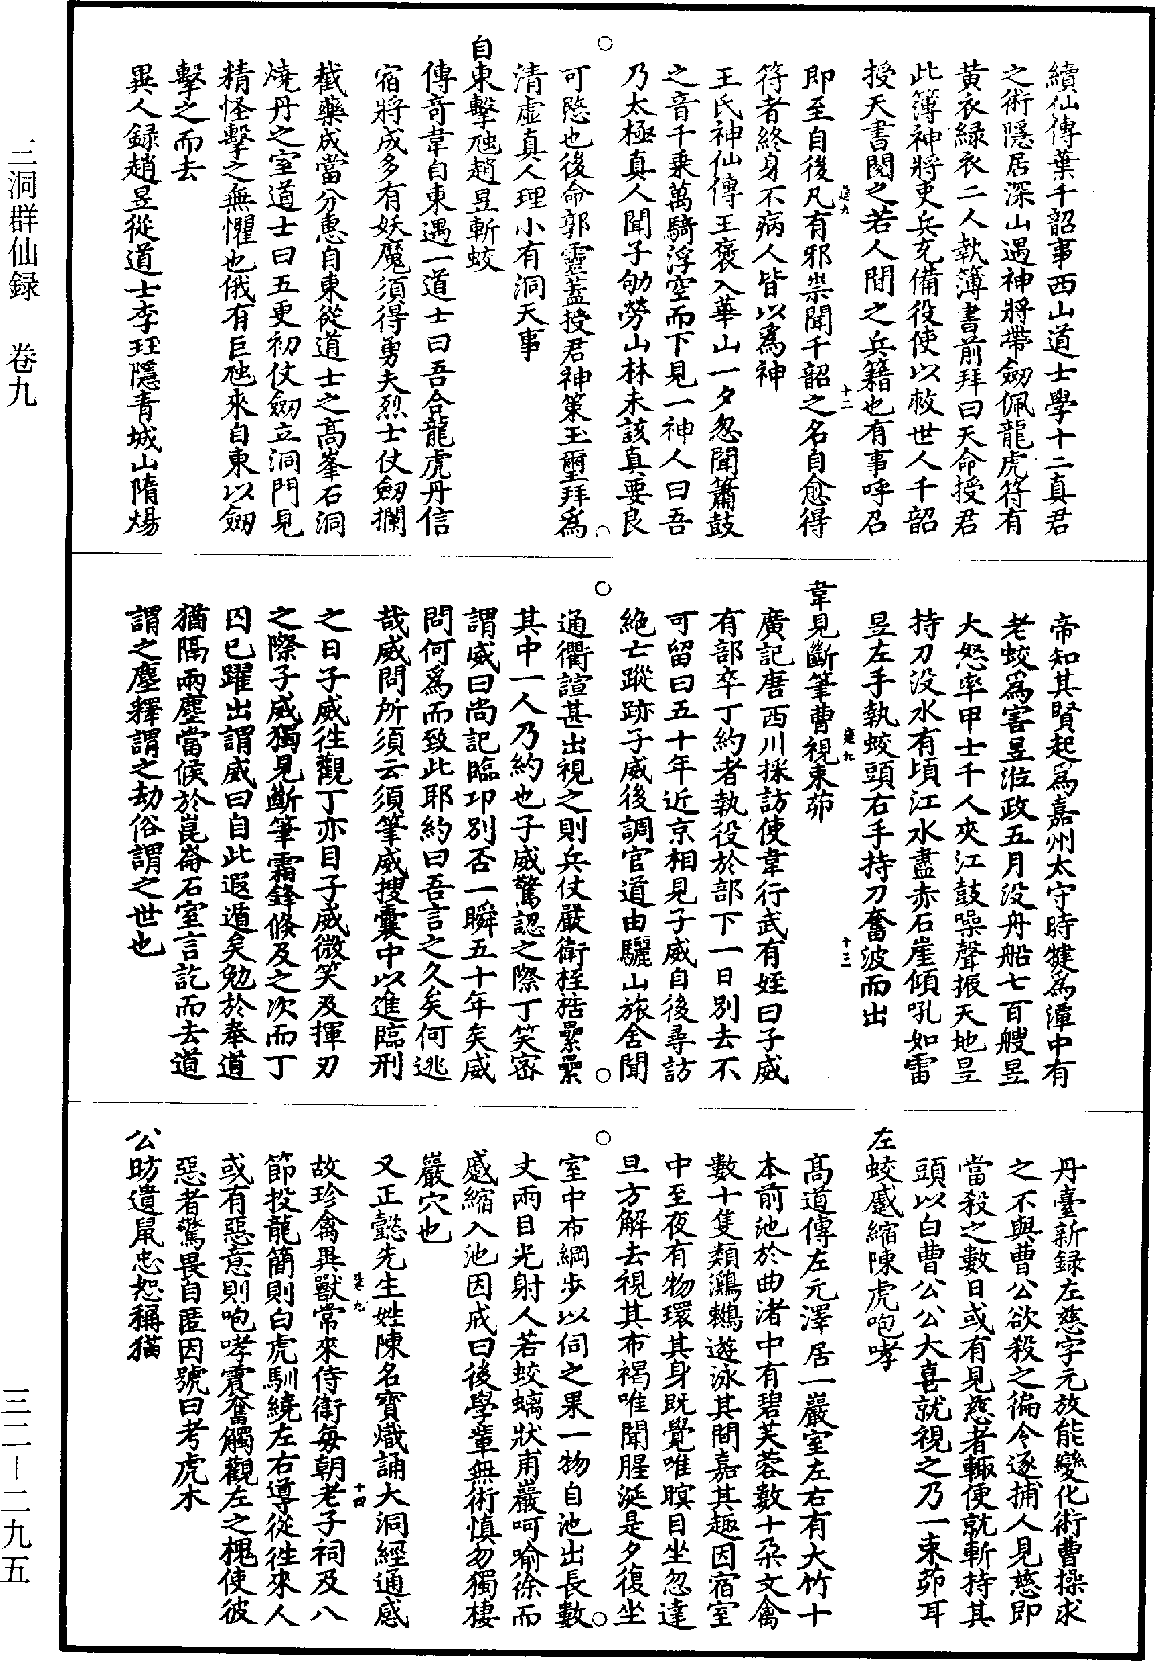 續仙傳葉千韶事西山道士學十二真君
之術隱居深山遇神將帶劒佩龍虎符有
黃衣綠衣二人執簿書前拜曰天命授君
此簿神將吏兵充備役使以救世人千韶
授天書閱之若人間之兵籍也有事呼召
即至自後凡有邪祟聞千韶之名自愈得
符者終身不病人皆以為神
王氏神仙傳王褒入華山一夕忽聞簫鼓
之音千乘萬騎浮空而下見一神人曰吾
乃太極真人聞子劬勞山林未該真要良
可愍也後命郭靈蓋授君神策玉璽拜為
清虛真人理小有洞天事
自東擊虺趙昱斬蛟
傳奇韋自東遇一道士曰吾合龍虎丹信
宿將成多有妖魔須得勇夫烈士仗劒攔
截藥成當分惠自東從道士之高峯石洞
燒丹之室道士曰五更初仗劒立洞門見
精怪擊之無懼也俄有巨虺來自東以劒
擊之而去
異人錄趙昱從道士李珏隱青城山隋煬
帝知其賢起為嘉州太守時犍為潭中有
老蛟為害昱涖政五月没舟船七百艘昱
大怒率甲士千人夾江鼓噪聲振天地昱
持刀没水有頃江水盡赤石崖傾吼如雷
昱左手執蛟頭右手持刀奮波而出
韋見斷筆曹視束茆
廣記唐西川採訪使韋行武有姪曰子威
有部卒丁約者執役於部下一日別去不
可留曰五十年近京相見子威自後尋訪
絕亡蹤跡子威後調官道由驪山旅舍聞
通衢諠甚出視之則兵仗嚴衛桎梏纍纍
其中一人乃約也子威驚認之際丁笑密
謂威曰尚記臨卭別否一瞬五十年矣威
問何為而致此耶約曰吾言之久矣何逃
哉威問所須云須筆威搜囊中以進臨刑
之日子威徃觀丁亦目子威微笑及揮刃
之際子威獨見斷筆霜鋒倏及之次而丁
因已躍出謂威曰自此遐遁矣勉於奉道
猶隔兩塵當候於崑崙石室言訖而去道
謂之塵釋謂之劫俗謂之世也
丹臺新錄左慈字元放能變化術曹操求
之不與曹公欲殺之徧令逐捕人見慈即
當殺之數日或有見慈者輙便就斬持其
頭以白曹公公大喜就視之乃一束茆耳
左蛟蹙縮陳虎咆哮
高道傳左元澤居一巖室左右有大竹十
本前池於曲渚中有碧芙蓉數十朶文禽
數十隻類鸂鶒遊泳其間嘉其趣因宿室
中至夜有物環其身既覺唯瞑目坐忽達
旦方解去視其布褐唯聞腥涎是夕復坐
室中布綱步以伺之果一物自池出長數
丈兩目光射人若蛟螭狀甫巖呵喻徐而
蹙縮入池因戒曰後學輩無術慎勿獨棲
巖穴也
又正懿先生姓陳名寶熾誦大洞經通感
故珍禽異獸常來侍衛每朝老子祠及八
節投龍簡則白虎馴繞左右導從徃來人
或有惡意則咆哮震奮觸觀左之槐使彼
惡者驚畏自匿因號曰考虎木
公昉遺鼠忠恕稱猫
三洞群仙録　卷九
三二－二九五